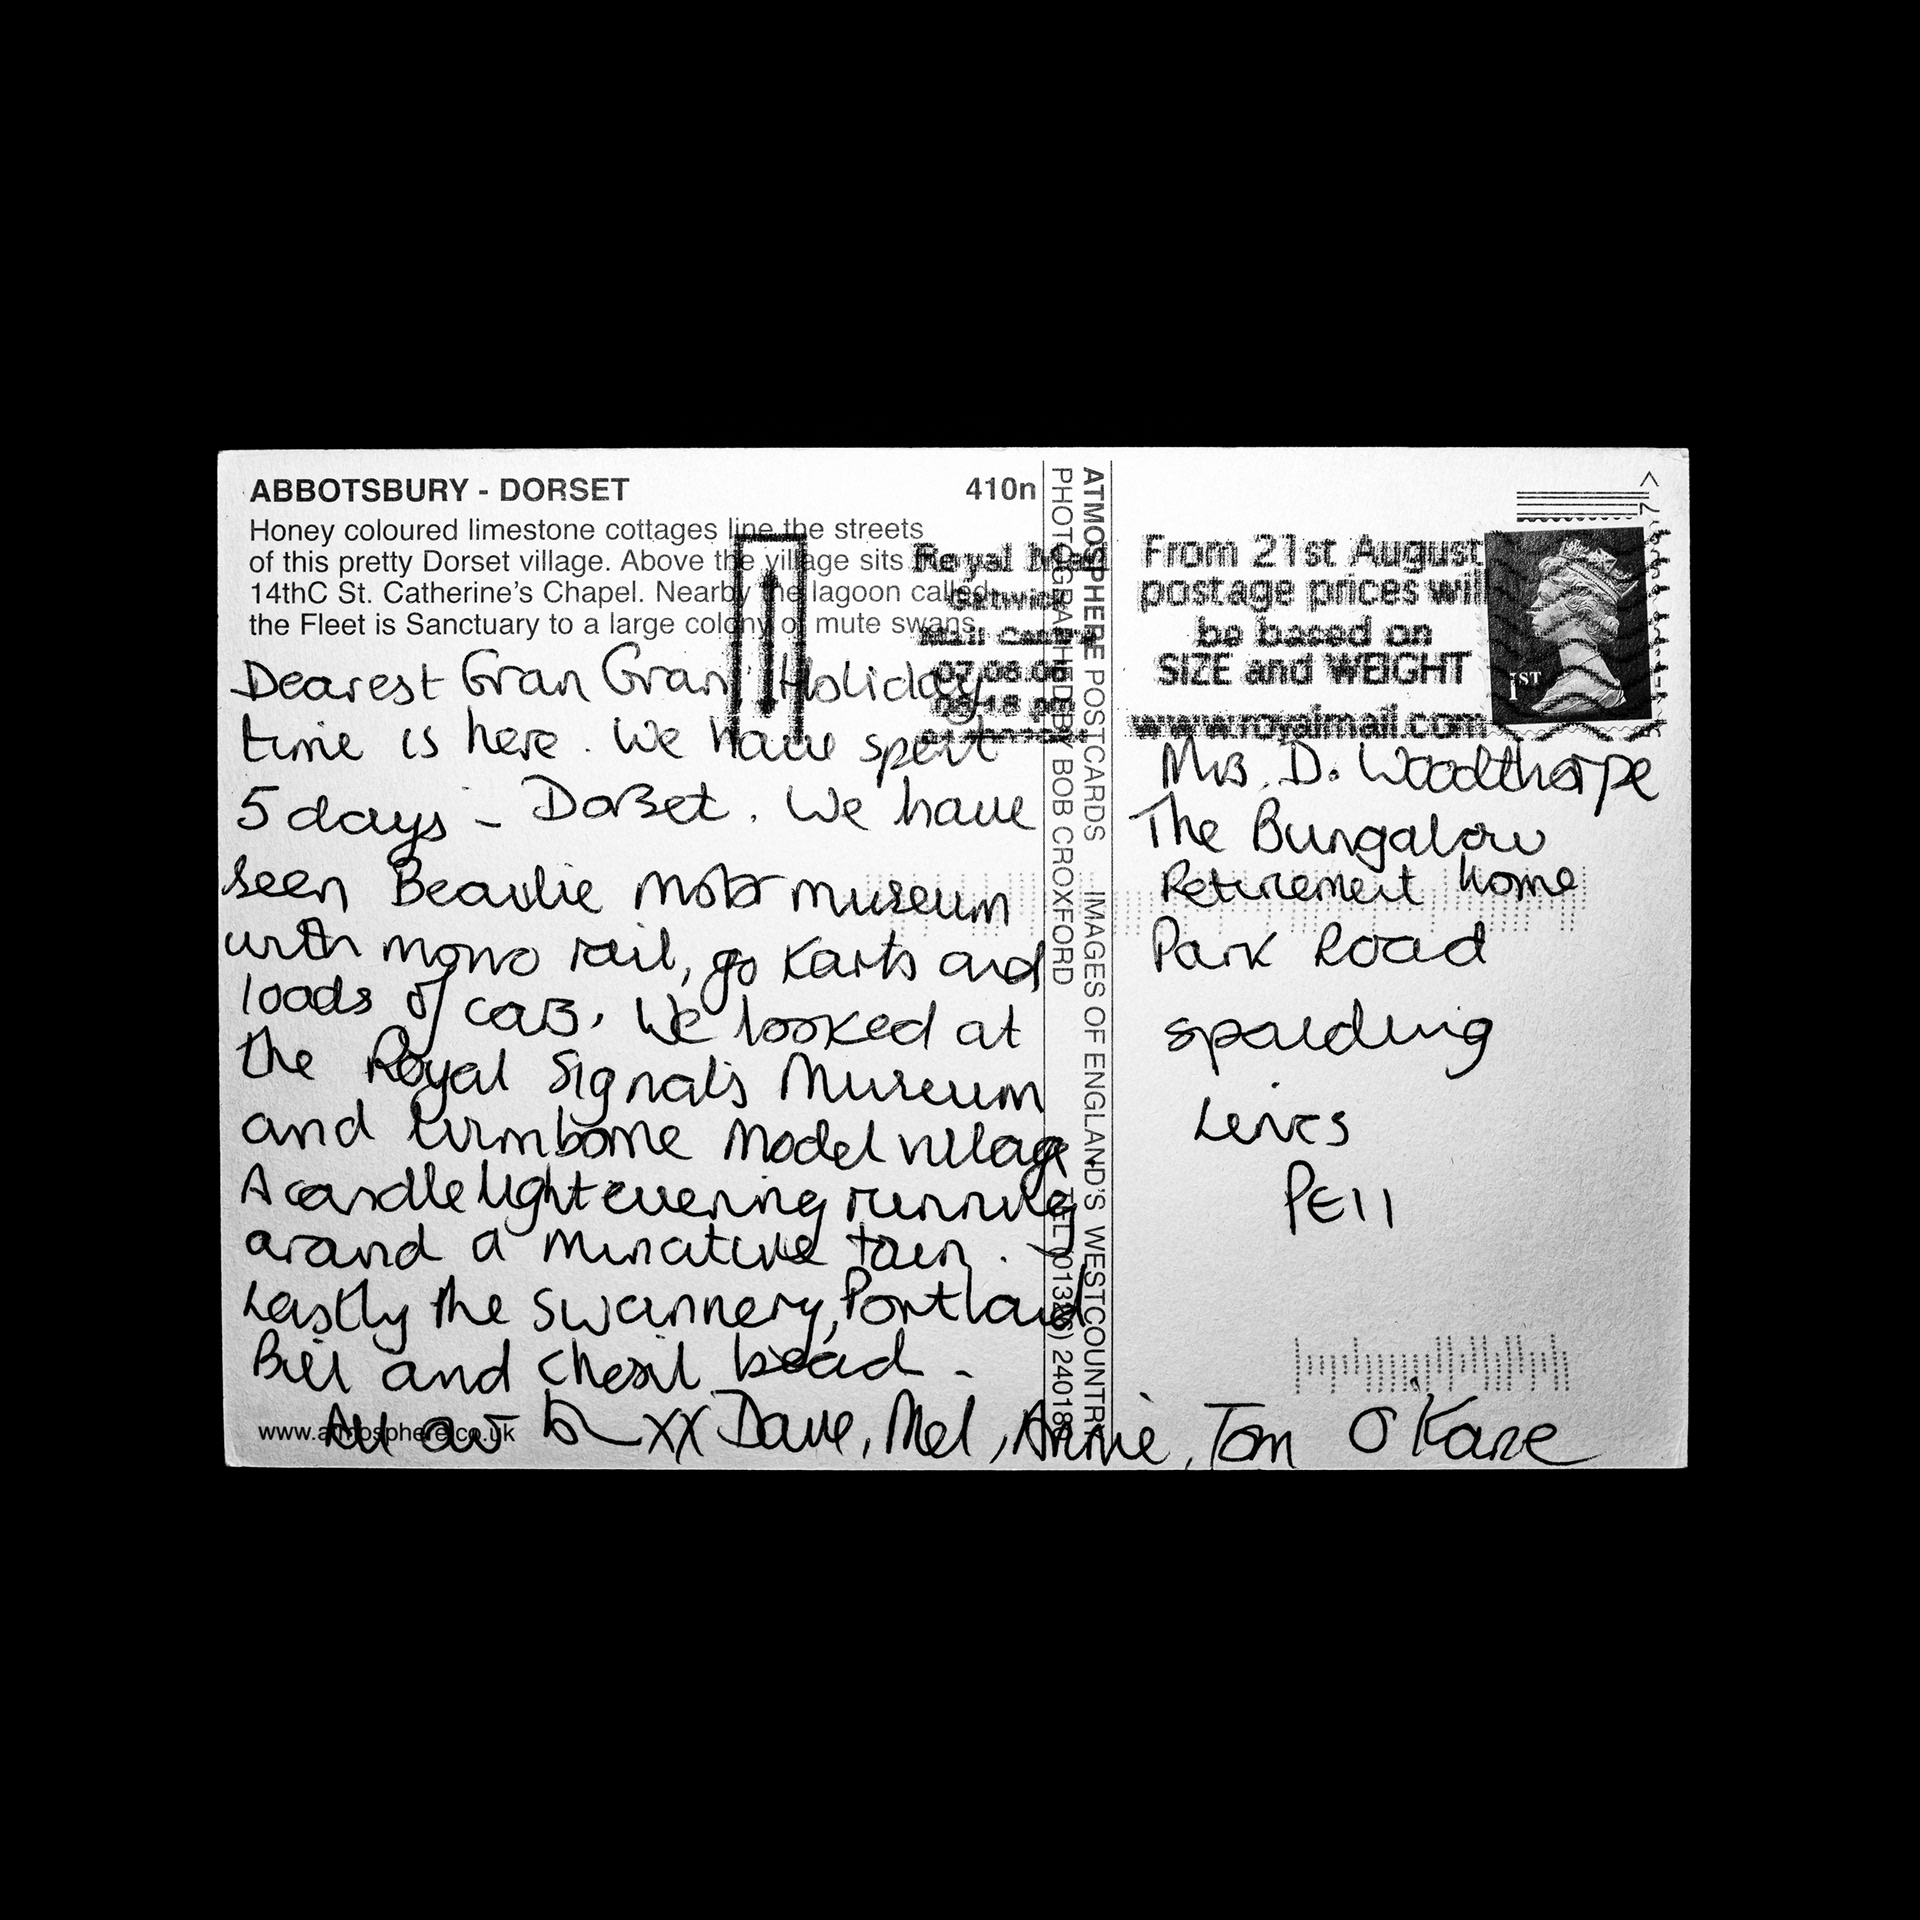 ABBOTSBURY - DORSET 410n
Honey coloured limestone cottages line the streets
of this pretty Dorset village. Above the village sits
14thC St. Catherine's Chapel. Nearby the lagoon called
the Fleet is Sanctuary to a large colony of mute swans.
Dearest Gran Gran, Holiday
time is here. We have spent
5 days - Dorset. We have
seen Beaulie motor museum
with mono rail, go karts and
loads of cars. We looked at
the Royal Signals Museum
and wimborne Model village
A candle light evening running
around a miniature town.
Lastly the Swannery, Portland
Bill and Chesil
All our xx Dave, Mel, Annie, Tom O'Kane
www.atmosphere.co.uk
ATMOSPHERE POSTCARDS IMAGES OF ENGLAND'S WESTCOUNTRY
PHOTOGRAPHED BY BOB CROXFORD
Royal Mail
Mail Centre
From 21st August
postage prices will
be based on
SIZE and WEIGHT
www.royalmail.com
1ST
Mrs. D. Woodthorpe
The Bungalow
Retirement home
Park Road
spalding
Lincs
PE11